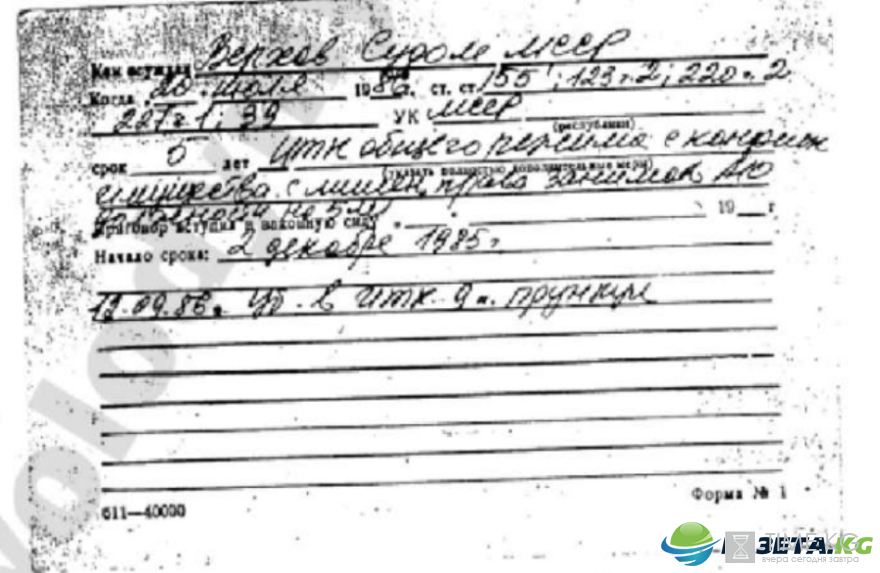 Кем осужден Верхов Судом МССР
Когда 20 июля 1986 г. ст. ст. 155¹; 123 ч 2; 220 ч. 2
227 ч 1; 39 УК МССР
(республики)
срок 5 лет ИТК общего режима с конфиск
(указать полностью дополнительные меры)
имущества с лишен. права занимат
должности на 5 лет
Приговор вступил в законную силу „ " 19 г
Начало срока: 2 декабря 1985 г
19.09.86 г. уб. в ИТК-9 п. Прункул
611—40000
Форма № 1
ЗЕТА.KG
вчера сегодня завтра
Volodim